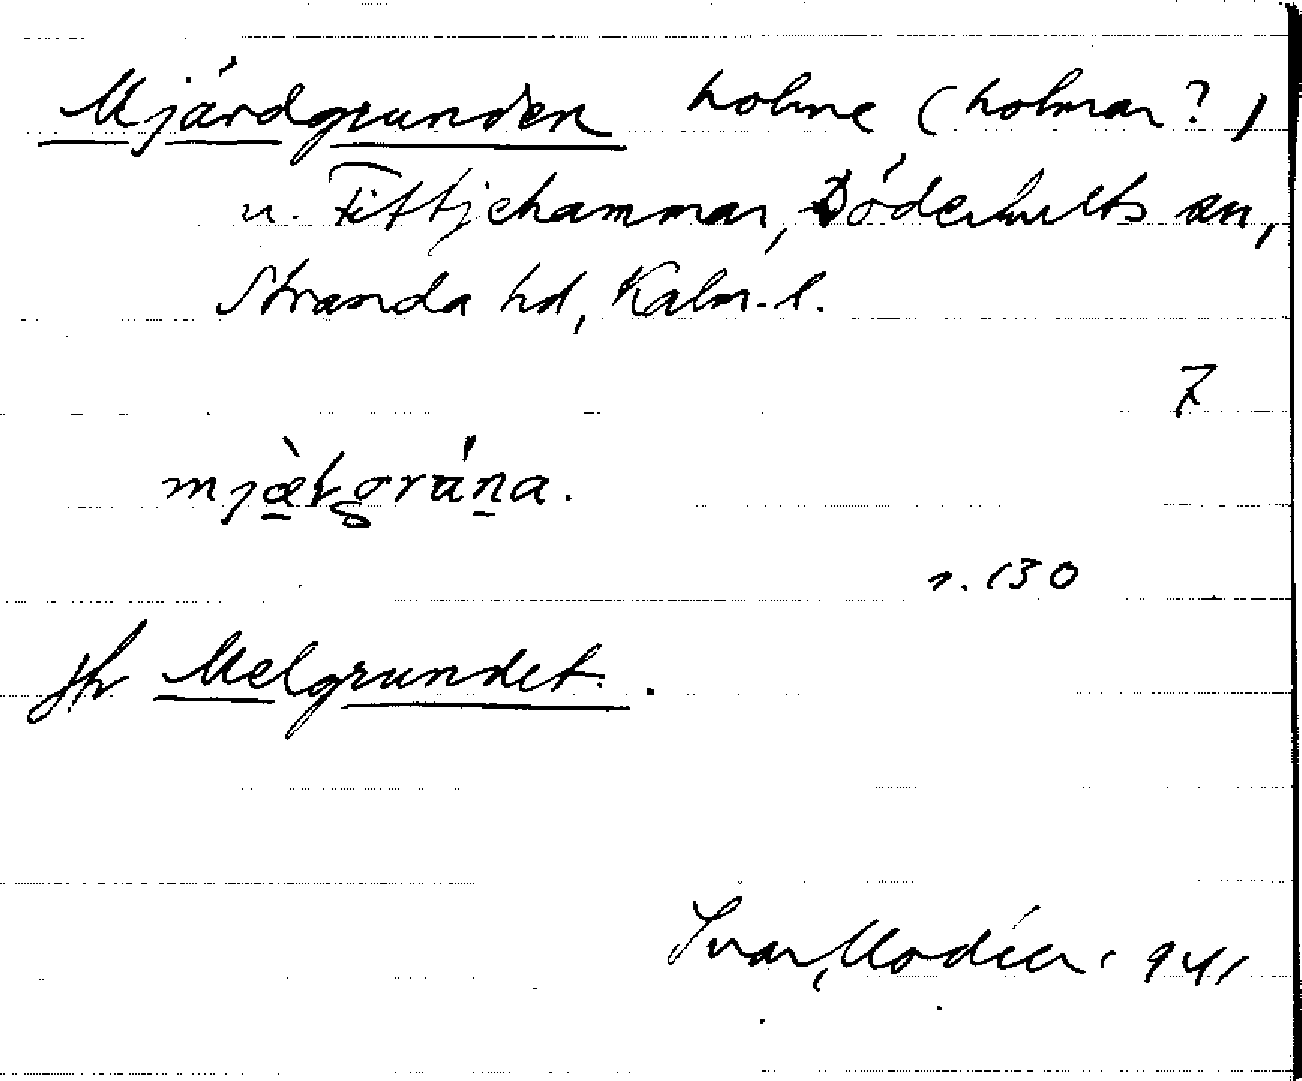 Mjärdgrunden holme (holmar?)
u. Fittjehammar, Döderhults sn,
Stranda hd, Kalm. l.
7
s. 130
jfr Melgrundet.
Ivar Modéer 1941